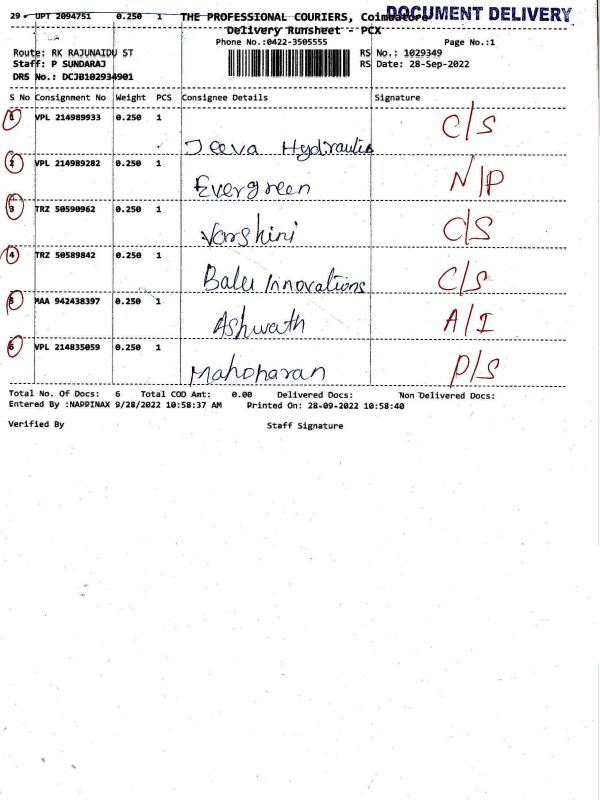 29 UPT 2094751 0.250 1 THE PROFESSIONAL COURIERS, Coimbatore DOCUMENT DELIVERY
Delivery Runsheet - PCX
Phone No.:0422-3505555 Page No.:1
Route: RK RAJUNAIDU ST RS No.: 1029349
Staff: P SUNDARAJ RS Date: 28-Sep-2022
DRS No.: DCJB102934901
S No Consignment No Weight PCS Consignee Details Signature
1 VPL 214989933 0.250 1 C/S
Jeeva Hydraulis
2 VPL 214989282 0.250 1 N/P
Evergreen
3 TRZ 50590962 0.250 1 C/S
Varshini
4 TRZ 50589842 0.250 1 C/S
Balu Innovations
5 MAA 942438397 0.250 1 A/I
Ashwath
6 VPL 214835059 0.250 1 P/S
Manoharan
Total No. Of Docs: 6 Total COD Amt: 0.00 Delivered Docs: Non Delivered Docs:
Entered By :NAPPINAX 9/28/2022 10:58:37 AM Printed On: 28-09-2022 10:58:40
Verified By Staff Signature